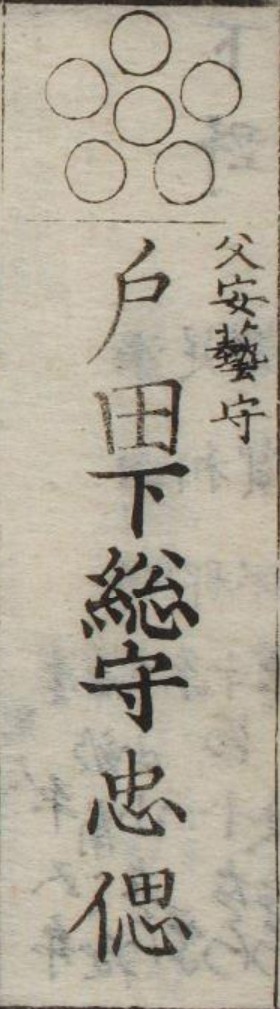 父安藝守
戸田下総守忠偲